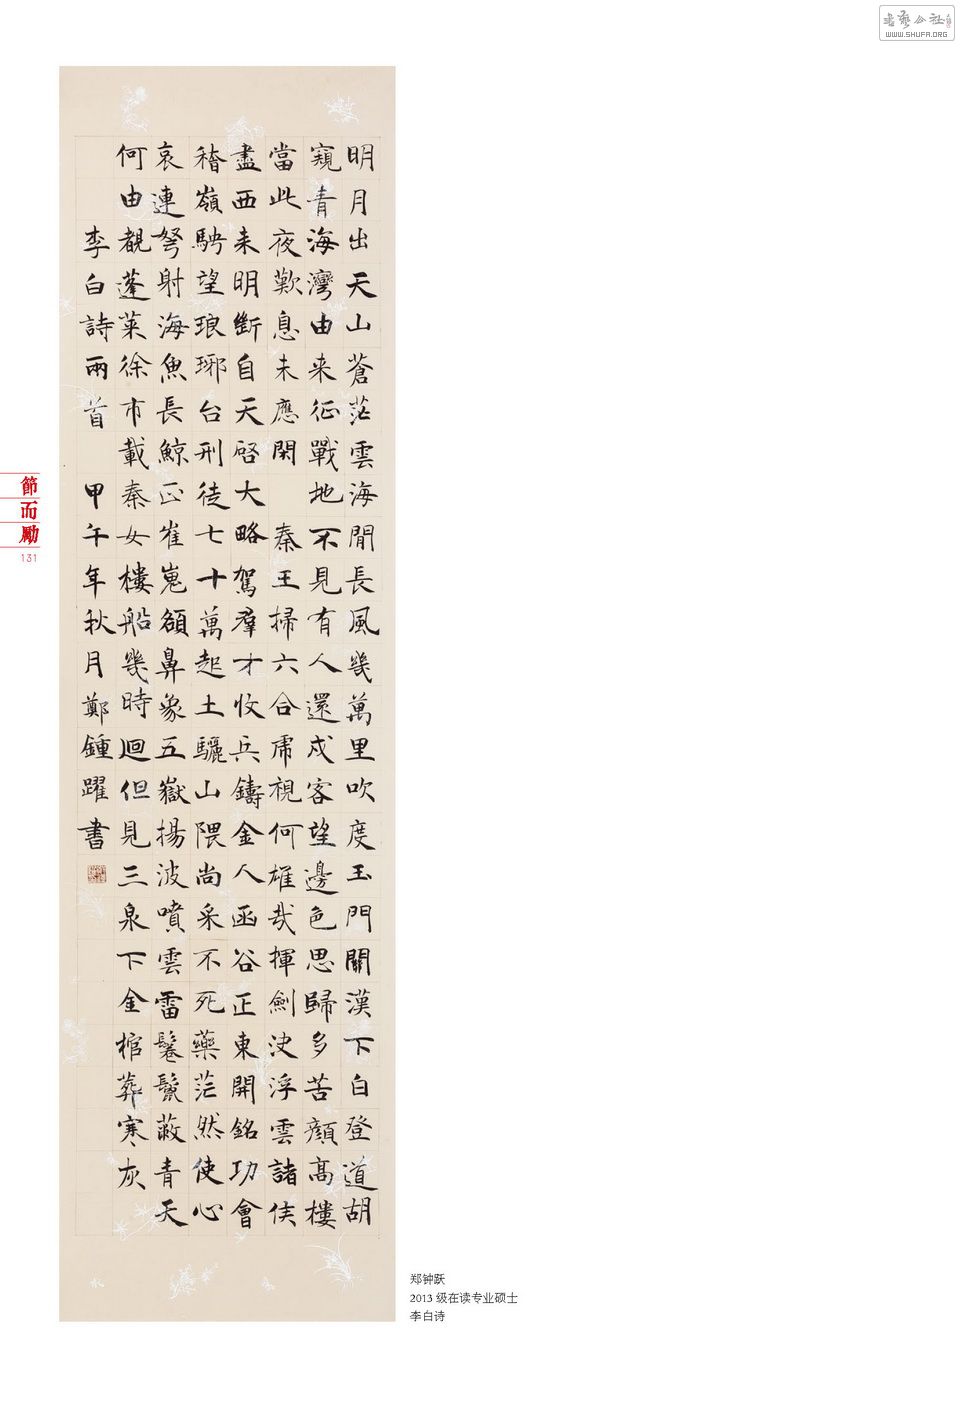 明月出天山蒼茫雲海閒長風幾萬里吹度玉門關漢下白登道胡
窺青海灣由来征戰地不見有人還戍客望邊色思歸多苦顏高樓
當此夜歎息未應閑 秦王掃六合虎視何雄哉揮劍決浮雲諸侯
盡西来明斷自天啓大略駕羣才收兵鑄金人函谷正東開銘功會
稽嶺騁望琅琊台刑徒七十萬起土驪山隈尚采不死藥茫然使心
哀連弩射海魚長鯨正崔嵬額鼻象五嶽揚波噴雲雷鬈鬣蔽青天
何由覩蓬萊徐市載秦女樓船幾時迴但見三泉下金棺葬寒灰
李白詩兩首 甲午年秋月鄭鍾躍書
節而勵
131
郑钟跃
2013 级在读专业硕士
李白诗
WWW.SHUFA.ORG